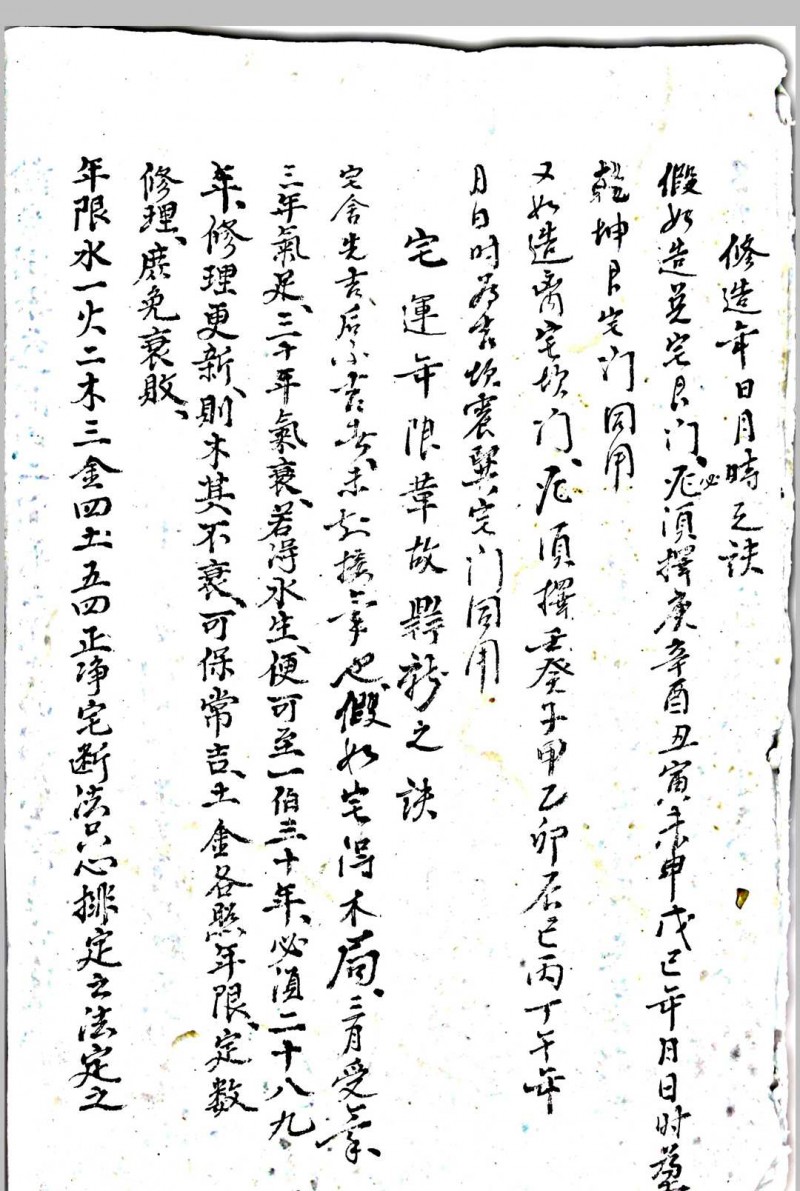 修造年日月時之訣
假如造兑宅艮门、必须擇庚辛酉丑寅未申戊己年月日时
乾坤艮宅门同用
又如造离宅坎门、须擇壬癸子甲乙卯辰巳丙丁午年
月日时为吉坎震巽宅门同用
宅運年限革故鼎新之訣
宅舍先吉、后不吉者、未知接氣也、假如宅得木局、三月受氣
三年氣足、三十年氣衰、若得水生、便可至一伯三十年、必须二十八九
年、修理更新、則木其不衰、可保常吉、土金各照年限、定数
修理、庶免衰敗、
年限水一火二木三金四土五四正净宅断法只心排定之法定之